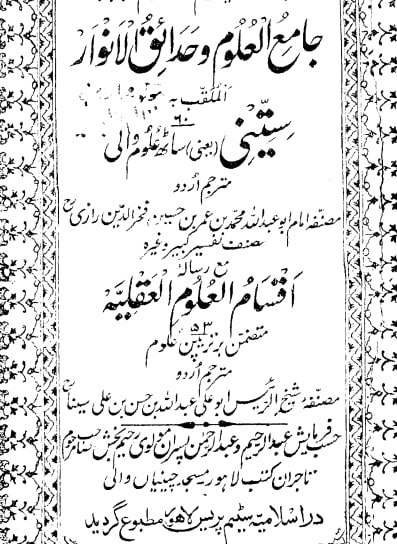 جامع العلوم و حدائق الانوار
الملقب بہ
۶۰
ستینی (یعنی) ساٹھ علوم والی
مترجم اُردو
مصنفہ امام ابو عبداللہ محمد بن عمر بن حسین فخر الدین رازی رح
مصنف تفسیر کبیر وغیرہ
مع رسالہ
اقسام العلوم العقلیہ
۵۳
متضمن بر تریپن علوم
مترجم اُردو
مصنفہ شیخ الرئیس ابو علی عبداللہ بن حسن بن علی سینا رح
حسب فرمایش عبدالرحیم و عبدالرحمٰن پسران مولوی رحیم بخش صاحب مرحوم
تاجران کتب لاہور مسجد چینیاں والی
در اسلامیہ سٹیم پریس لاہور مطبوع گردید